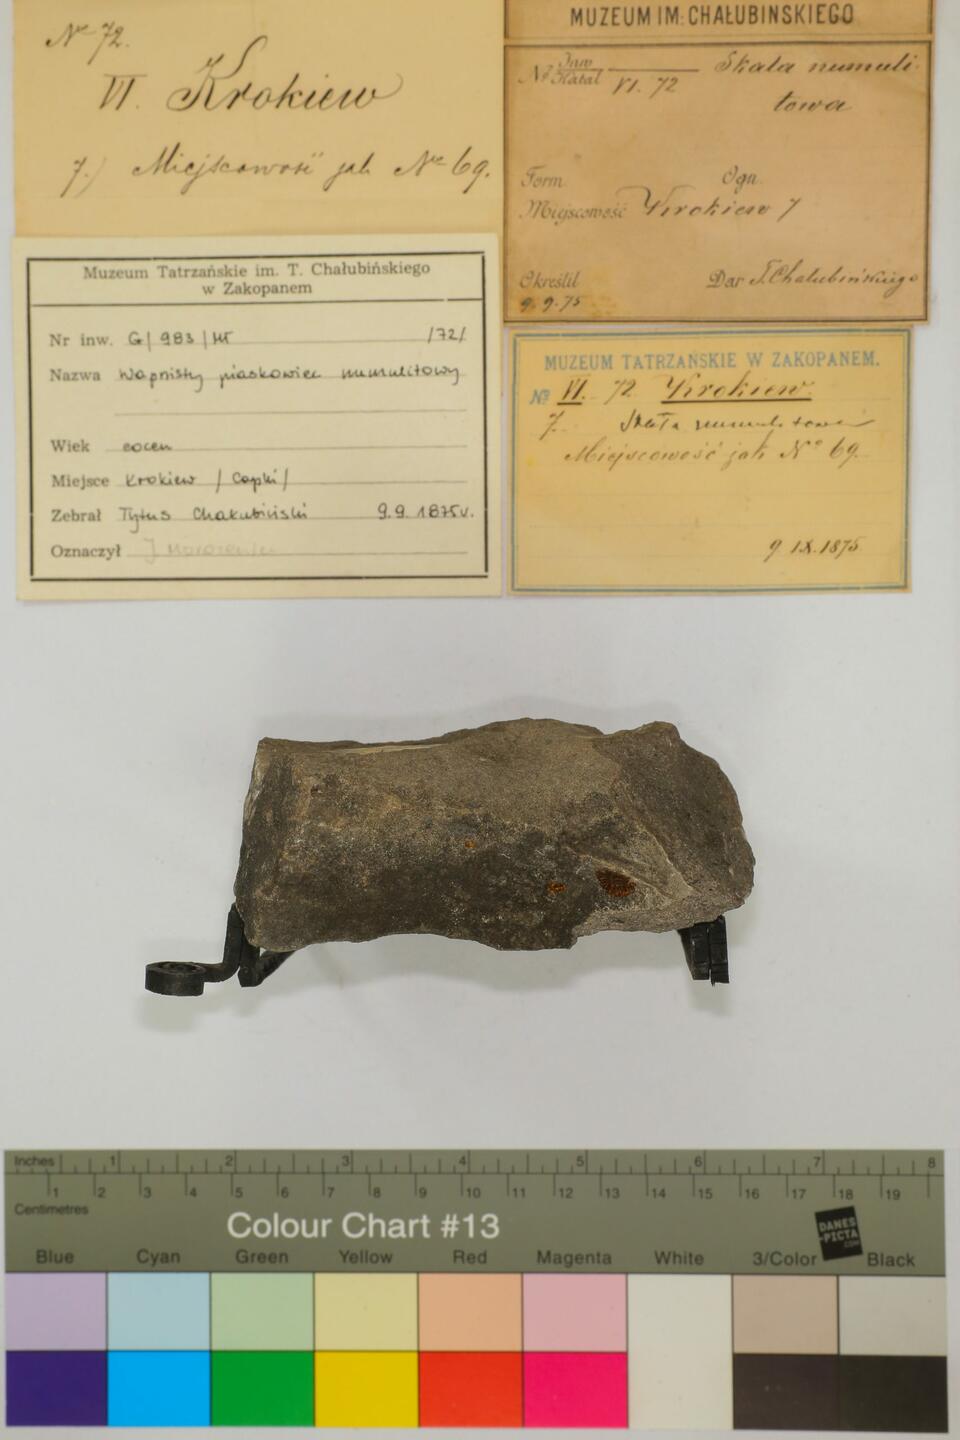 Nº 72.
VI. Krokiew
7.) Miejscowość jak Nº 69.
MUZEUM IM. CHAŁUBIŃSKIEGO
Nº Inw
Katal VI. 72 Skała numuli-
towa
Form. Ogn.
Miejscowość Krokiew 7
Określił Dar T. Chałubińskiego
9.9.75
Muzeum Tatrzańskie im. T. Chałubińskiego
w Zakopanem
Nr inw. G/983/MT /72/
Nazwa Wapnisty piaskowiec numulitowy
Wiek eocen
Miejsce Krokiew /Capki/
Zebrał Tytus Chałubiński 9.9.1875r.
Oznaczył J. Morozewicz
MUZEUM TATRZAŃSKIE W ZAKOPANEM.
Nº VI. 72 Krokiew.
7. Skała numulitowa
Miejscowość jak Nº 69.
9.IX.1875.
Inches 1 2 3 4 5 6 7 8
1 2 3 4 5 6 7 8 9 10 11 12 13 14 15 16 17 18 19
Centimetres
Colour Chart #13
DANES
PICTA
.COM
Blue Cyan Green Yellow Red Magenta White 3/Color Black